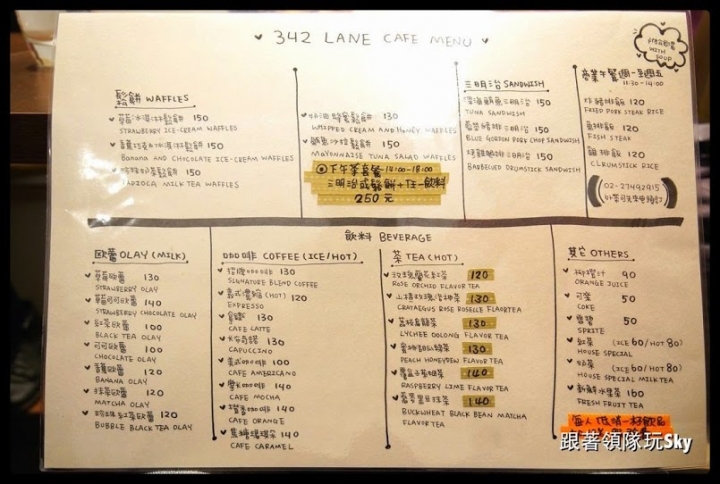 342 LANE CAFE MENU
WITH
SOUP
鬆餅 WAFFLES
草莓冰淇淋鬆餅 150
STRAWBERRY ICE-CREAM WAFFLES
香蕉巧克力冰淇淋鬆餅 150
BANANA AND CHOCOLATE ICE-CREAM WAFFLES
珍珠奶茶鬆餅 150
TAPIOCA MILK TEA WAFFLES
奶油蜂蜜鬆餅 130
WHIPPED CREAM AND HONEY WAFFLES
鹹鮪沙拉鬆餅 150
MAYONNAISE TUNA SALAD WAFFLES
下午茶套餐 14:00-18:00
三明治或鬆餅+任一飲料
250元
三明治 SANDWISH
鮪魚三明治 150
TUNA SANDWISH
藍帶豬排三明治 150
BLUE GORDON PORK CHOP SANDWISH
烤雞腿排三明治 150
BARBECUED DRUMSTICK SANDWISH
商業午餐週一至週五
11:30-14:00
炸豬排飯 120
FRIED PORK STEAK RICE
魚排飯 120
FISH STEAK
雞排飯 120
CLRUMSTICK RICE
02-27492915
外帶可先來電預訂
飲料 BEVERAGE
歐蕾 OLAY (MILK)
草莓歐蕾 130
STRAWBERRY OLAY
草莓可可歐蕾 140
STRAWBERRY CHOCOLATE OLAY
紅茶歐蕾 100
BLACK TEA OLAY
可可歐蕾 100
CHOCOLATE OLAY
香蕉歐蕾 120
BANANA OLAY
抹茶歐蕾 120
MATCHA OLAY
珍珠紅茶歐蕾 120
BUBBLE BLACK TEA OLAY
咖啡 COFFEE (ICE/HOT)
招牌咖啡 130
SIGNATURE BLEND COFFEE
義式濃縮 (HOT) 120
ESPRESSO
拿鐵 130
CAFE LATTE
卡布奇諾 130
CAPUCCINO
美式咖啡 100
CAFE AMERICANO
摩卡咖啡 140
CAFE MOCHA
香橙咖啡 140
CAFE ORANGE
焦糖瑪琪朵 140
CAFE CARAMEL
茶 TEA (HOT)
玫瑰蘭花紅茶 120
ROSE ORCHID FLAVOR TEA
山楂玫瑰洛神茶 130
CRATAEGUS ROSE ROSELLE FLAORTEA
荔枝烏龍茶 130
LYCHEE OOLONG FLAVOR TEA
蜜桃 130
PEACH HONEYDEW FLAVOR TEA
覆盆子萊姆茶 140
RASPBERRY LIME FLAVOR TEA
蕎麥黑豆抹茶 140
BUCKWHEAT BLACK BEAN MATCHA
FLAVOR TEA
其它 OTHERS
柳橙汁 90
ORANGE JUICE
可樂 50
COKE
雪碧 50
SPRITE
紅茶 (ICE 60/HOT 80)
HOUSE SPECIAL
奶茶 (ICE 60/HOT 80)
HOUSE SPECIAL MILK TEA
新鮮水果茶 160
FRESH FRUIT TEA
每人低消一杯飲品
跟著領隊玩Sky